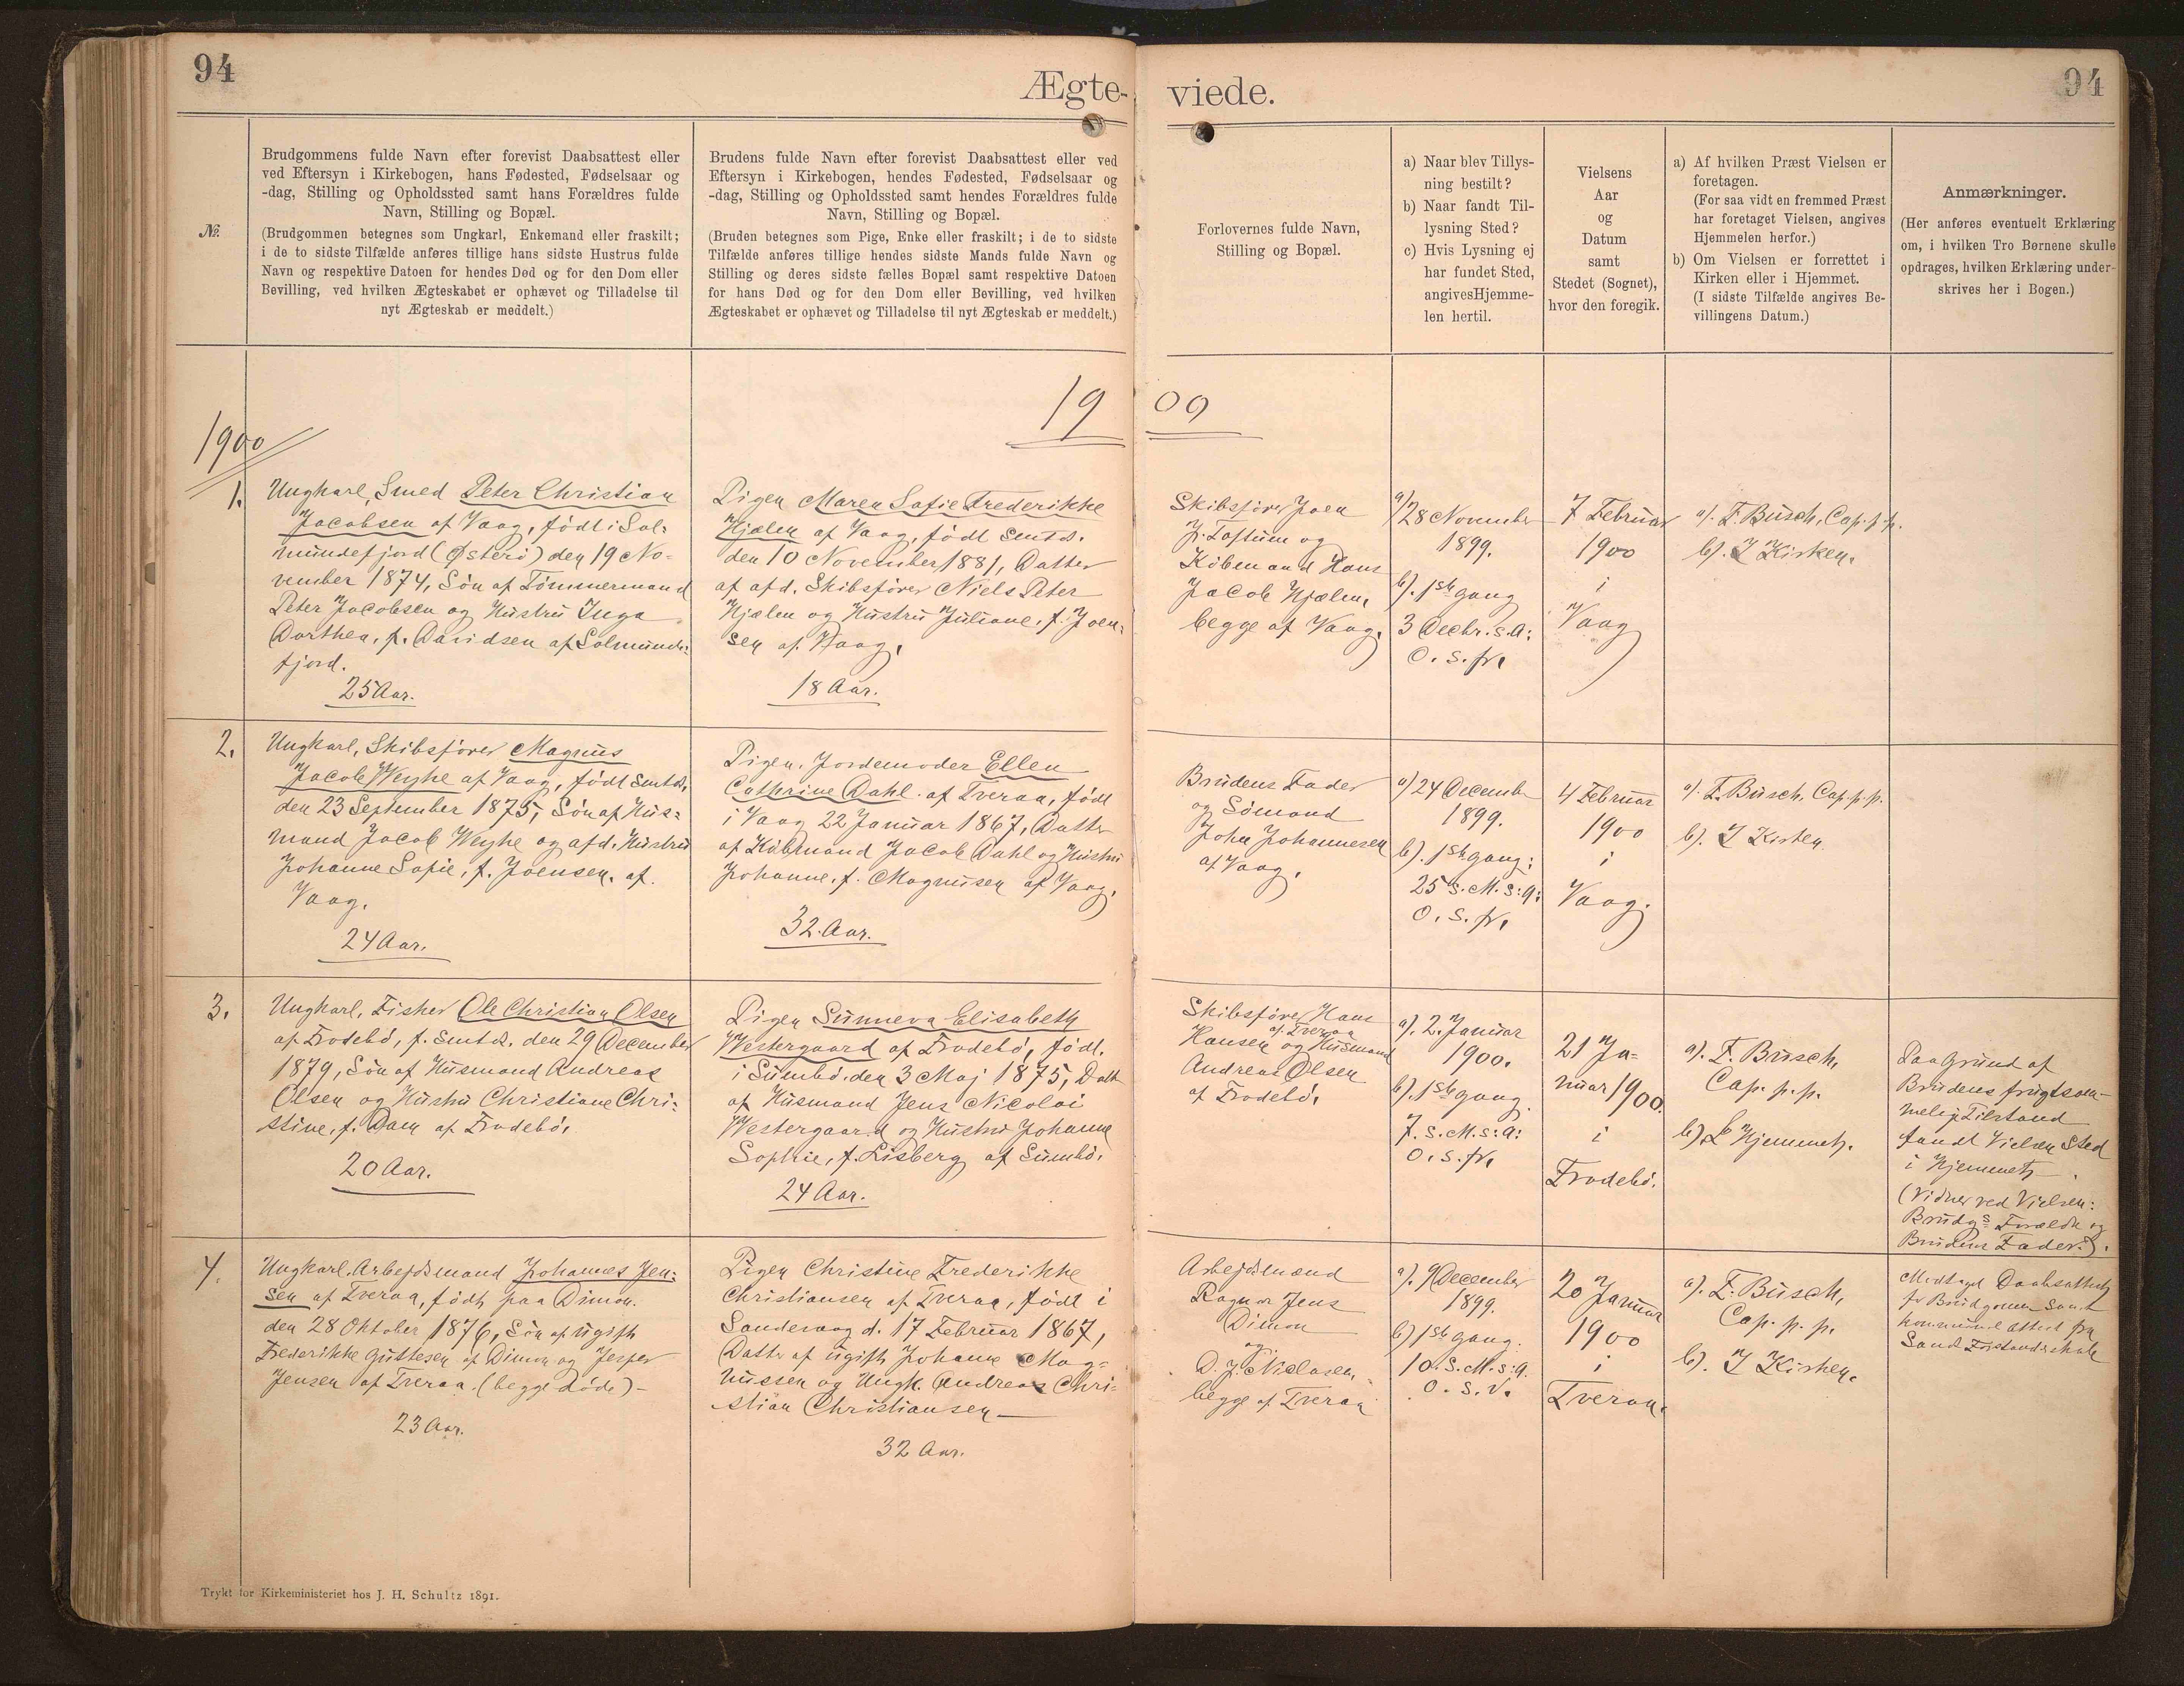 94
94
Ægte-
viede.
№.
Brudgommens fulde Navn efter forevist Daabsattest eller
ved Eftersyn i Kirkebogen, hans Fødested, Fødselsaar og
-dag, Stilling og Opholdssted samt hans Forældres fulde
Navn, Stilling og Bopæl.
(Brudgommen betegnes som Ungkarl, Enkemand eller fraskilt;
i de to sidste Tilfælde anføres tillige hans sidste Hustrus fulde
Navn og respektive Datoen for hendes Død og for den Dom eller
Bevilling, ved hvilken Ægteskabet er ophævet og Tilladelse til
nyt Ægteskab er meddelt.)
Brudens fulde Navn efter forevist Daabsattest eller ved
Eftersyn i Kirkebogen, hendes Fødested, Fødselsaar og
-dag, Stilling og Opholdssted samt hendes Forældres fulde
Navn, Stilling og Bopæl.
(Bruden betegnes som Pige, Enke eller fraskilt; i de to sidste
Tilfælde anføres tillige hendes sidste Mands fulde Navn og
Stilling og deres sidste fælles Bopæl samt respektive Datoen
for hans Død og for den Dom eller Bevilling, ved hvilken
Ægteskabet er ophævet og Tilladelse til nyt Ægteskab er meddelt.)
Forlovernes fulde Navn,
Stilling og Bopæl.
a) Naar blev Tillys-
ning bestilt?
b) Naar fandt Til-
lysning Sted?
c) Hvis Lysning ej
har fundet Sted,
angivesHjemme-
len hertil.
Vielsens
Aar
og
Datum
samt
Stedet (Sognet),
hvor den foregik.
a) Af hvilken Præst Vielsen er
foretagen.
(For saa vidt en fremmed Præst
har foretaget Vielsen, angives
Hjemmelen herfor.)
b) Om Vielsen er forrettet i
Kirken eller i Hjemmet.
(I sidste Tilfælde angives Be-
villingens Datum.)
Anmærkninger.
(Her anføres eventuelt Erklæring
om, i hvilken Tro Børnene skulle
opdrages, hvilken Erklæring under-
skrives her i Bogen.)
19 00
1900
1.
Ungkarl, Smed Peter Christian
Jacobsen af Vaag, födt i Sol=
mundefjord (Østerö) den 19 No=
vember 1874, Sön af Tömmermand
Peter Jacobsen og Hustru Inga
Dorthea, f. Davidsen af Solmunde=
fjord.
25 Aar.
Pigen Maren Sofie Frederikke
Hjælm af Vaag, födt smtds.
den 10 November 1881, Datter
af afd. Skibsförer Niels Peter
Hjælm og Hustru Juliane, f. Joen=
sen af Vaag,
18 Aar.
Skibsförer Joen
J. Toftum og
Köbmand Hans
Jacob Hjælm,
begge af Vaag.
a) 28 November
1899.
b). 1ste gang
3 Decbr. s. A:
O. s. fr.
7 Februar
1900
i
Vaag
a). F. Busch, Cap. p. p.
b). I Kirken.
2.
Ungkarl, Skibsförer Magnus
Jacob Weyhe af Vaag, födt smtds.
den 23 September 1875, Sön af Hus=
mand Jacob Weyhe og afd. Hustru
Johanne Sofie, f. Joensen, af
Vaag.
24 Aar.
Pigen, Jordemoder Ellen
Cathrine Dahl af Tveraa, födt
i Vaag 22 Januar 1867, Datter
af Köbmand Jacob Dahl og Hustru
Johanne, f. Magnusen af Vaag,
32 Aar.
Brudens Fader
og Sömand
John Johannesen
af Vaag,
a) 24 December
1899.
b). 1ste gang:
25 s. M. s: A:
O. s. fr.
4 Februar
1900
i
Vaag.
a). F. Busch, Cap. p. p.
b). I Kirken
3.
Ungkarl, Fisker Ole Christian Olsen
af Frodebö, f. smtds. den 29 December
1879, Sön af Husmand Andreas
Olsen og Hustru Christiane Chri=
stine, f. Dam af Frodebö,
20 Aar.
Pigen Sunneva Elisabeth
Westergaard af Frodebö, födt.
i Sumbö, den 3 Maj 1875, Datt
af Husmand Jens Nicolai
Westergaard og Hustru Johanne
Sophie, f. Lisberg af Sumbö,
24 Aar.
Skibsförer Hans
Hansen af Tveraa og Husmand
Andreas Olsen
af Frodebö.
a). 2. Januar
1900.
b). 1ste gang
7. s. M. s: A:
O. s. fr.
21 Ja=
nuar 1900.
i
Frodebö.
a). F. Busch,
Cap. p. p.
b). I Hjemmet.
Paa Grund af
Brudens frugtsom-
melig Tilstand
fandt Vielsen Sted
i Hjemmet
(Vidner ved Vielsen:
Brudgs Forældre og
Brudens Fader).
4.
Ungkarl. Arbejdsmand Johannes Jen=
sen af Tveraa, födt paa Dimon.
den 28 Oktober 1876, Sön af ugift
Frederikke Guttesen af Dimon og Jesper
Jensen af Tveraa. (begge döde) -
23 Aar.
Pigen Christine Frederikke
Christiansen af Tveraa, födt i
Sandevaag d. 17 Februar 1867,
Datter af ugift Johanne Mag=
nussen og Ungk. Andreas Chri=
stian Christiansen —
32 Aar.
Arbejdsmænd
Jens
Dimon
og
D. J. Nielasen,
begge af Tveraa
a). 9 December
1899.
b) 1ste gang.
10. s. M. s: A.
O. s. v.
20 Januar
1900
i
Tveraa.
a). F. Busch,
Cap. p. p.
b). I Kirken.
Modtaget Daabsattest
for Brudgommen samt
attest fra
Sands Forstanderskab
Trykt for Kirkeministeriet hos J. H. Schultz 1891.